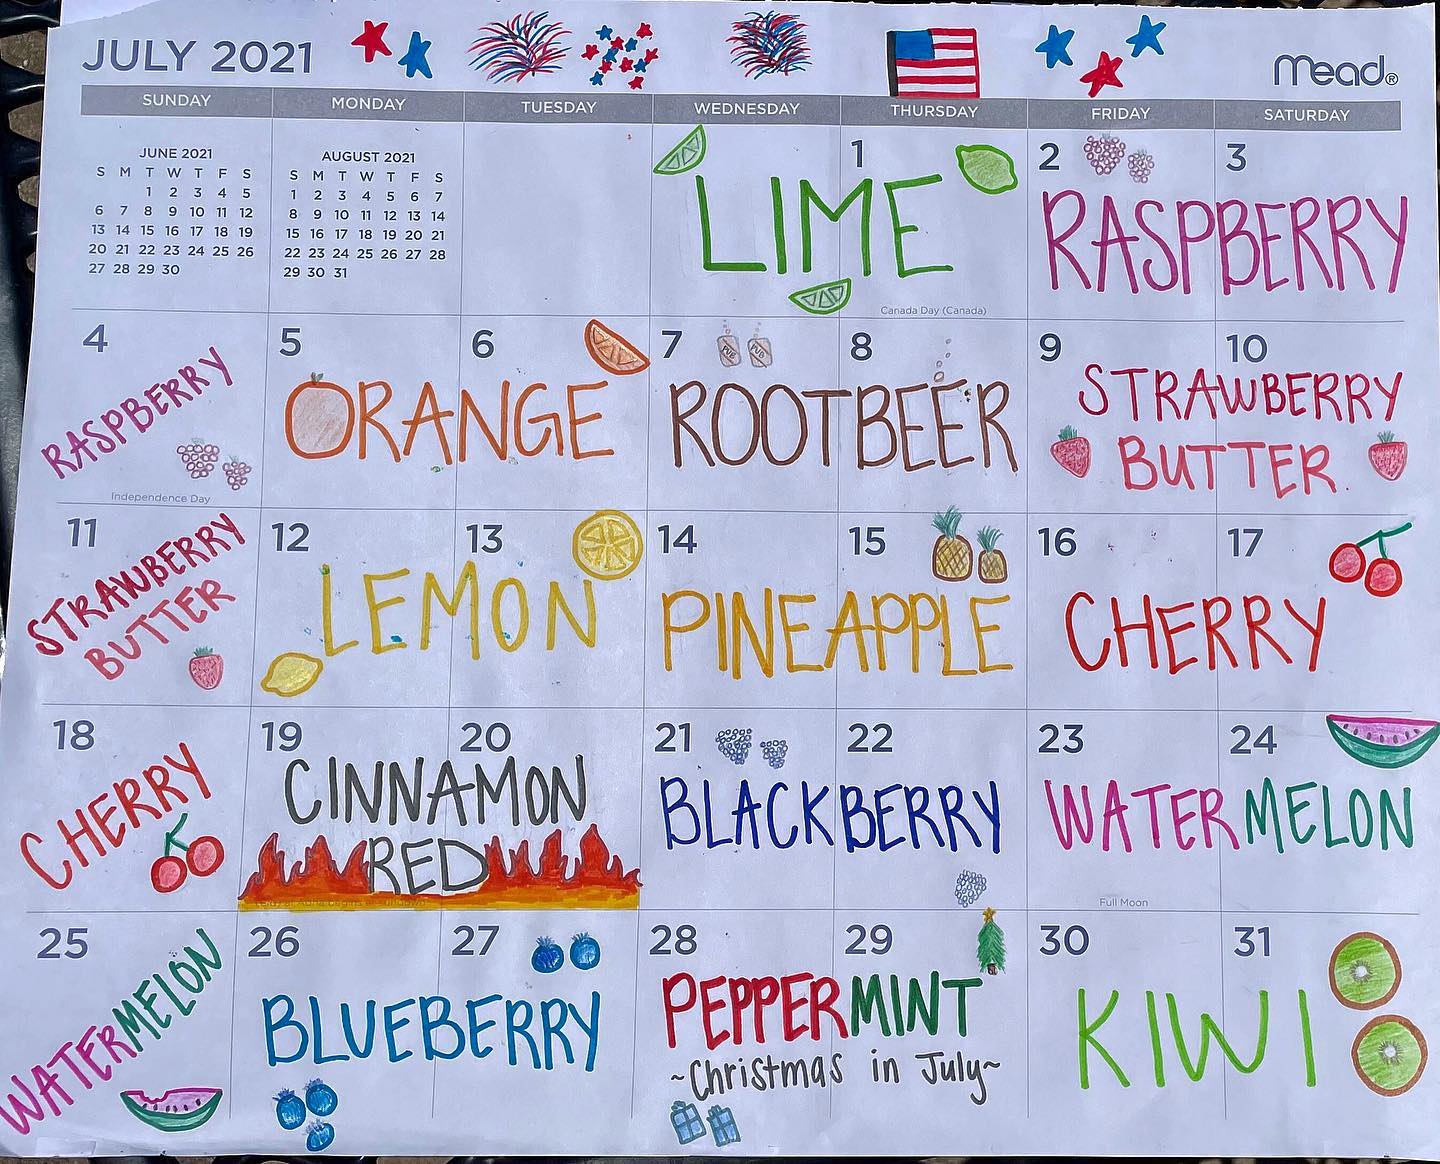 JULY 2021
Mead®
SUNDAY MONDAY TUESDAY WEDNESDAY THURSDAY FRIDAY SATURDAY
JUNE 2021
S M T W T F S
1 2 3 4 5
6 7 8 9 10 11 12
13 14 15 16 17 18 19
20 21 22 23 24 25 26
27 28 29 30
AUGUST 2021
S M T W T F S
1 2 3 4 5 6 7
8 9 10 11 12 13 14
15 16 17 18 19 20 21
22 23 24 25 26 27 28
29 30 31
1 2 3
LIME RASPBERRY
Canada Day (Canada)
4 5 6 7 8 9 10
PUB PUB
RASPBERRY
ORANGE
ROOTBEER
STRAWBERRY
BUTTER
Independence Day
11 12 13 14 15 16 17
STRAWBERRY
BUTTER
LEMON
PINEAPPLE
CHERRY
18 19 20 21 22 23 24
CHERRY
CINNAMON
RED
BLACKBERRY
WATERMELON
Full Moon
25 26 27 28 29 30 31
WATERMELON
BLUEBERRY
PEPPERMINT
~Christmas in July~
KIWI